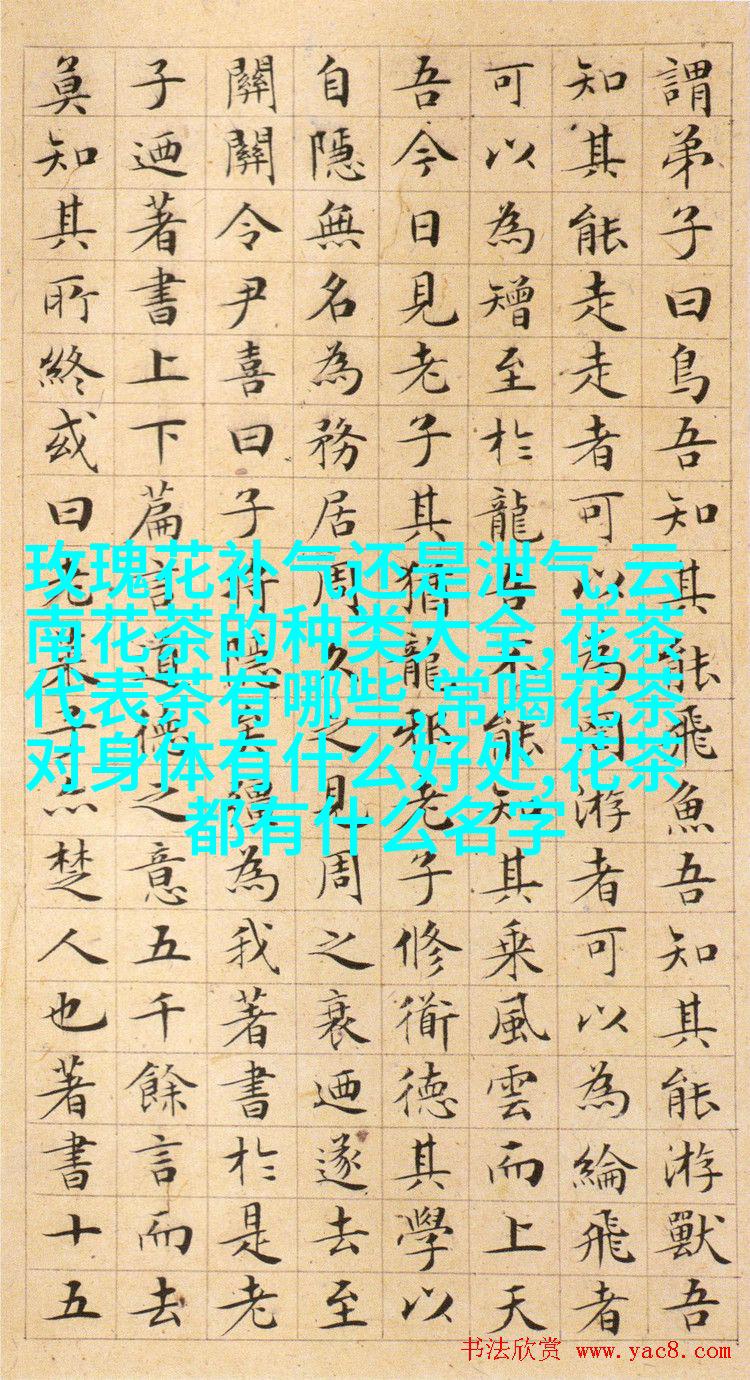 謂弟子曰鳥吾知其能飛魚吾知其能游獸吾
知其能走走者可以為罔游者可以為綸飛者
可以為矰至於龍吾不能知其乗風雲而上天
吾今日見老子其猶龍邪老子修衟德其學以
自隱無名為務居周久之見周之衰迺遂去至
關關令尹喜曰子將隱矣彊為我著書於是老
子迺著書上下篇言道德之意五千餘言而去
莫知其所終或曰老莱子亦楚人也著書十五
玫瑰花补气还是泄气,云
南花茶的种类大全,花茶
代表茶有哪些,常喝花茶
对身体有什么好处,花茶
都有什么名字
书法欣赏 www.yac8.com